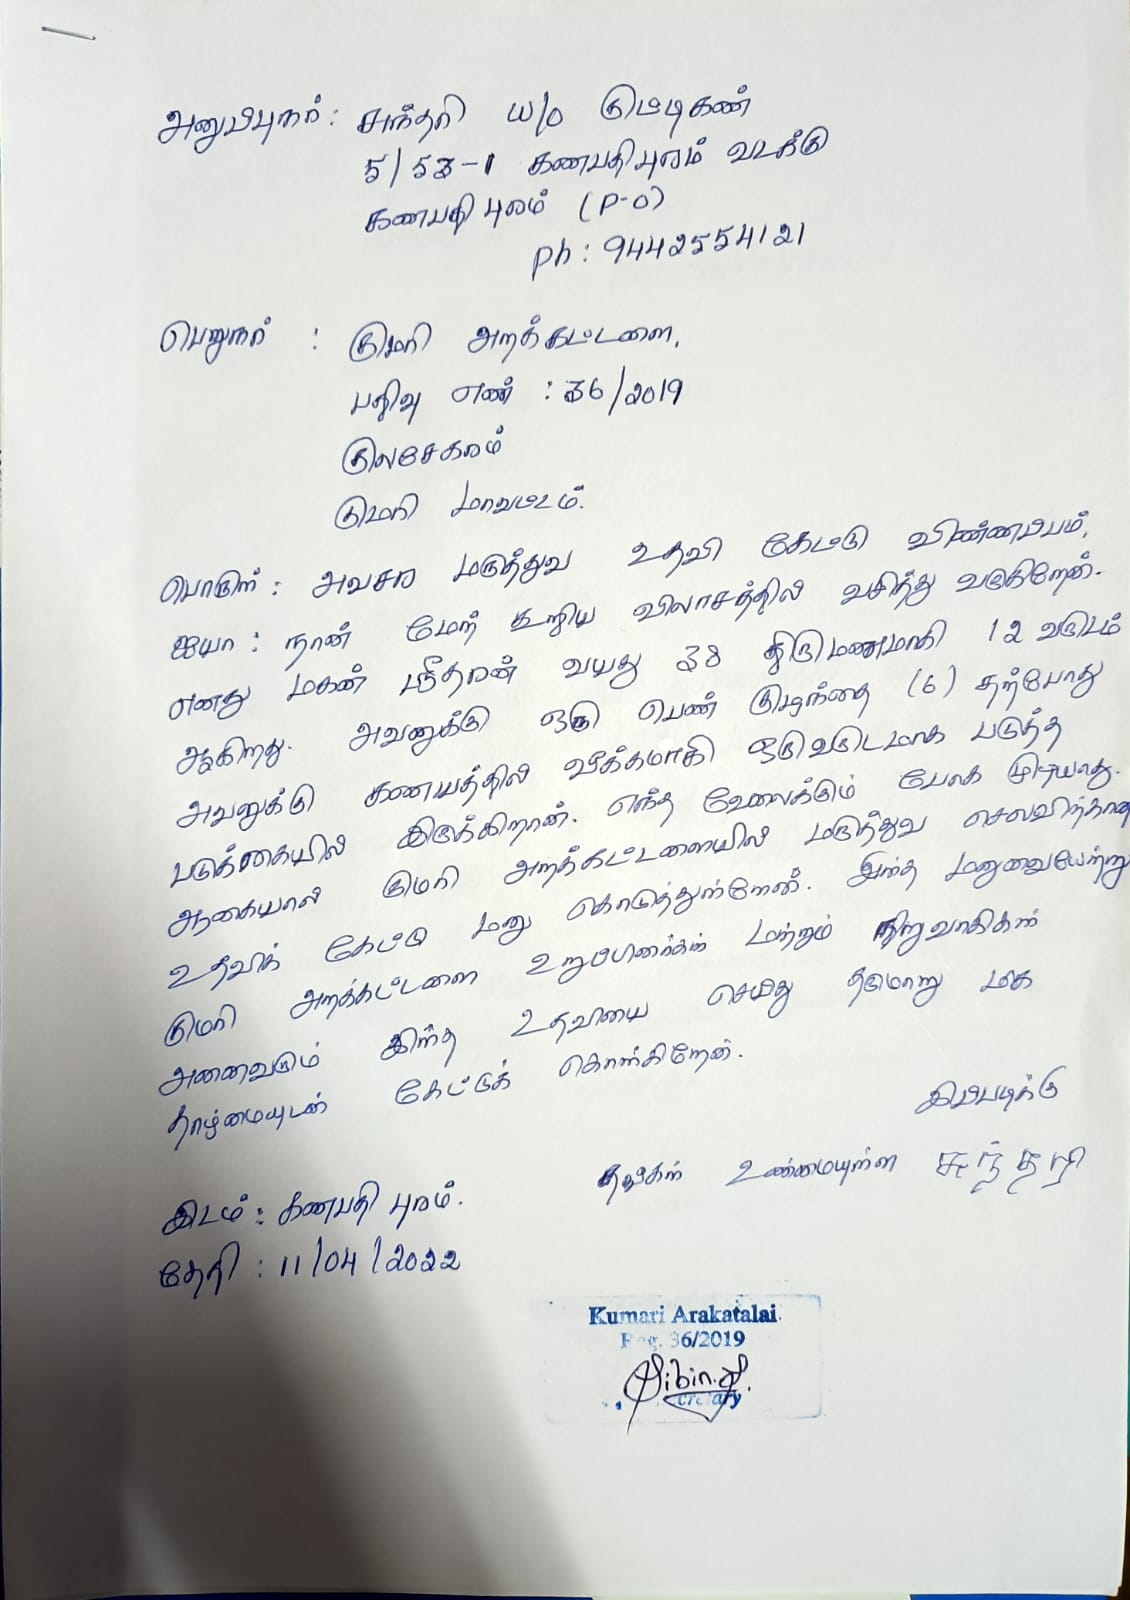 அனுப்புநர் : சுந்தரி W/o குட்டிகண்
5/53-1 கணபதிபுரம் வடக்கு
கணபதிபுரம் (P-O)
Ph : 9442554121
பெறுநர் : குமரி அறக்கட்டளை,
பதிவு எண் : 36/2019
குலசேகரம்
குமரி மாவட்டம்.
பொருள் : அவசர மருத்துவ உதவி கேட்டு விண்ணப்பம்.
ஐயா : நான் மேற் கூறிய விலாசத்தில் வசித்து வருகிறேன்.
எனது மகன் ஸ்ரீதரன் வயது 38 திருமணமாகி 12 வருடம்
ஆகிறது. அவனுக்கு ஒரு பெண் குழந்தை (6) தற்போது
அவனுக்கு கணயத்தில் வீக்கமாகி ஒருவருடமாக படுத்த
படுக்கையில் இருக்கிறான். எந்த வேலைக்கும் போக முடியாது.
ஆகையால் குமரி அறக்கட்டளையில் மருத்துவ செலவிற்கான
உதவிக் கேட்டு மனு கொடுத்துள்ளேன். இந்த மனுவையேற்று
குமரி அறக்கட்டளை உறுப்பினர்கள் மற்றும் நிறுவாகிகள்
அனைவரும் இந்த உதவியை செய்து தருமாறு மிக
தாழ்மையுடன் கேட்டுக் கொள்கிறேன்.
இப்படிக்கு
தங்கள் உண்மையுள்ள சுந்தரி
இடம் : கணபதி புரம்.
தேதி : 11/04/2022
Kumari Arakatalai
Reg. 36/2019
Secretary